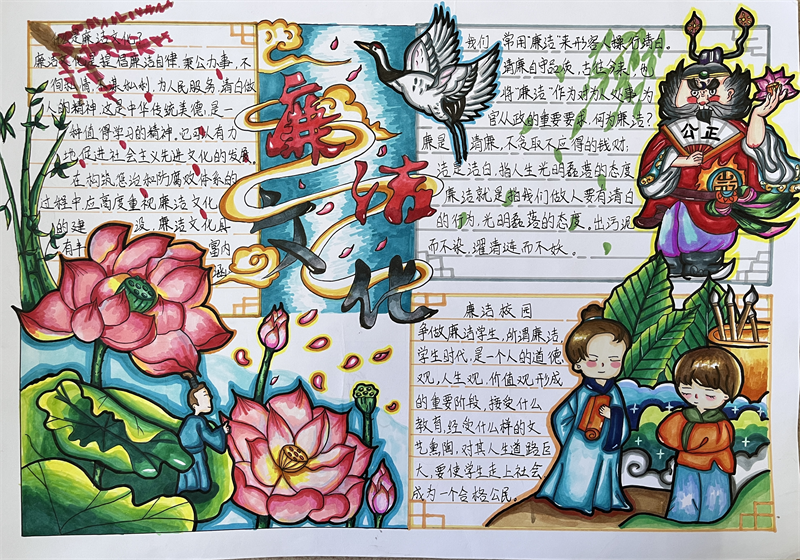 廉洁文化
是廉洁文化？
廉洁文化是提倡廉洁自律，秉公办事，不
徇私情，不谋私利，为人民服务，清白做
人的精神。这是中华传统美德，是一
种值得学习的精神，记可以有力
地促进社会主义先进文化的发展。
在构筑惩治和防腐败体系的
过程中应高度重视廉洁文化
的建 设，廉洁文化具
有丰 富内
涵
我们 常用“廉洁”来形容人操行清白。
清廉的守气质，志在分来，也
将“廉洁”作为对为人处事，为
官人政的重要要求，何为廉洁？
廉是 清廉，不贪取不应得的钱财，
洁是洁白，指人生光明磊落的态度
廉洁就是指我们做人要有清白
的行为，光明磊落的态度，出污泥
而不染，濯清涟而不妖。
公正
廉洁校园
争做廉洁学生，所谓廉洁，
学生时代，是一个人的道德
观，人生观，价值观形成
的重要阶段，接受什么
教育，经受什么样的文
艺熏陶，对其人生道路巨
大，要使学生走上社会
成为一个合格公民。